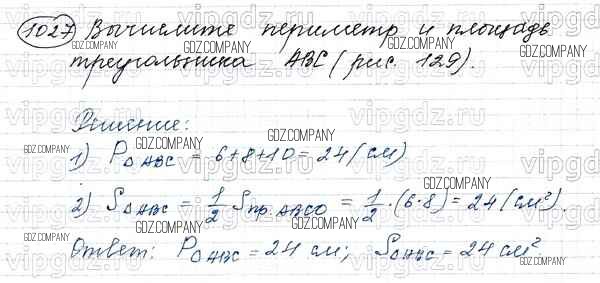 1027 Вычислите периметр и площадь
треугольника ABC (рис. 129).
Решение:
1) P△ABC = 6+8+10 = 24 (см)
2) S△ABC = 1/2 Sпр. ABCD = 1/2 · (6·8) = 24 (см²).
Ответ: P△ABC = 24 см; S△ABC = 24 см²
vipgdz.ru
GDZ.COMPANY